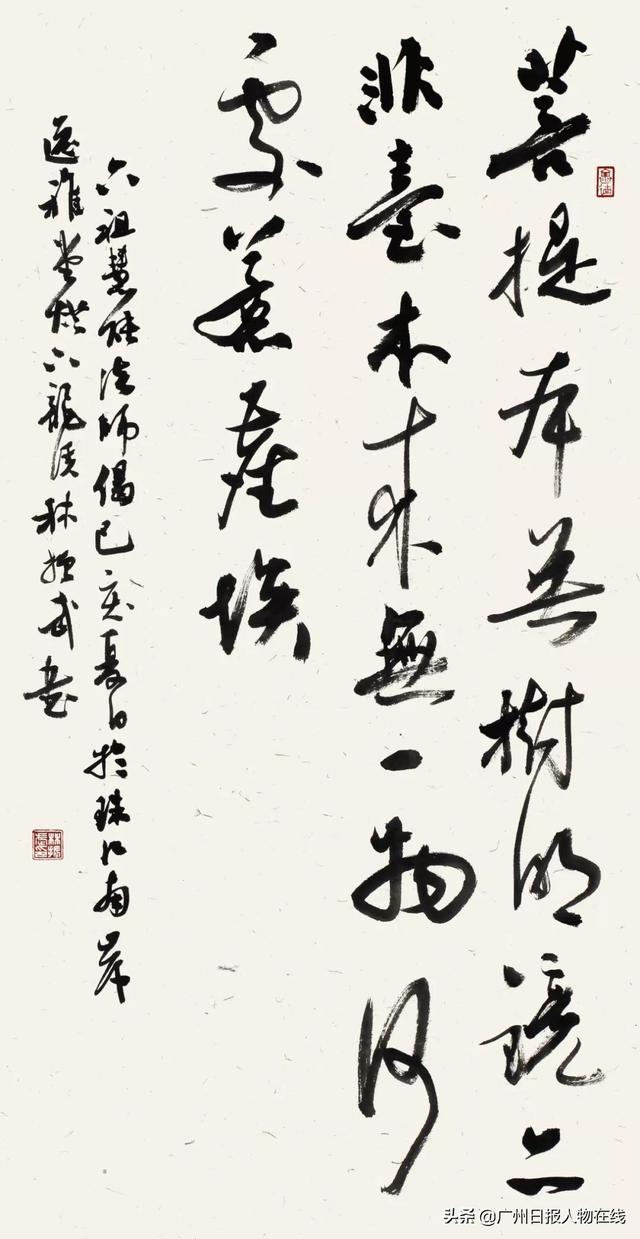 菩提本無樹明鏡亦
非臺本來無一物何
處惹塵埃
六祖慧能法師偈己亥夏日於珠江南岸
逸雅堂燈下龍溪林振武書
头条 @广州日报人物在线